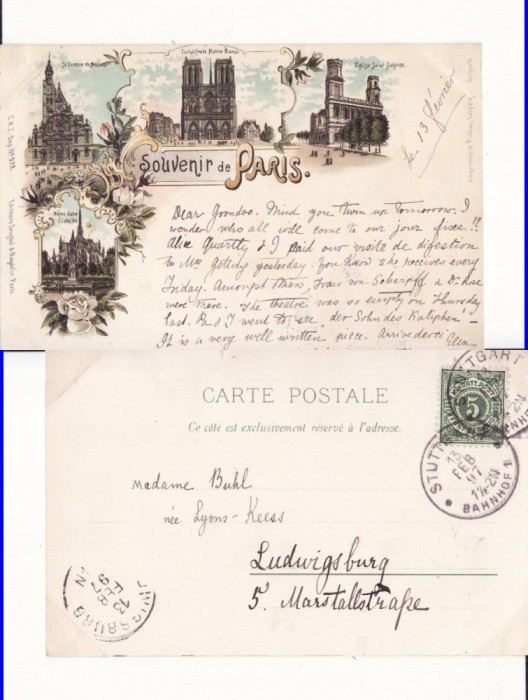 Cathédrale Notre Dame.
Eglise Saint Sulpice.
Souvenir de PARIS.
le 13 février
Dear Grandoo. Mind you turn up tomorrow. I
wonder who all will come to our jour fixe!!
Alice & I paid our visite de digestion
to Mrs yesterday. You know she receives every
Friday. Amongst them, Frau von & Dr.
were there. The theatre was so empty on Thursday
last. Pa & I went to see der Sohn des Kaliphen -
It is a very well written piece. Arrivederci Ella
CARTE POSTALE
Ce côté est exclusivement réservé à l'adresse.
5
STUTTGART
13 FEB 97
BAHNHOF
Madame Buhl
née Lyons-Keess
Ludwigsburg
5. Marstallstraße
LUDWIGSBURG
13 FEB 97